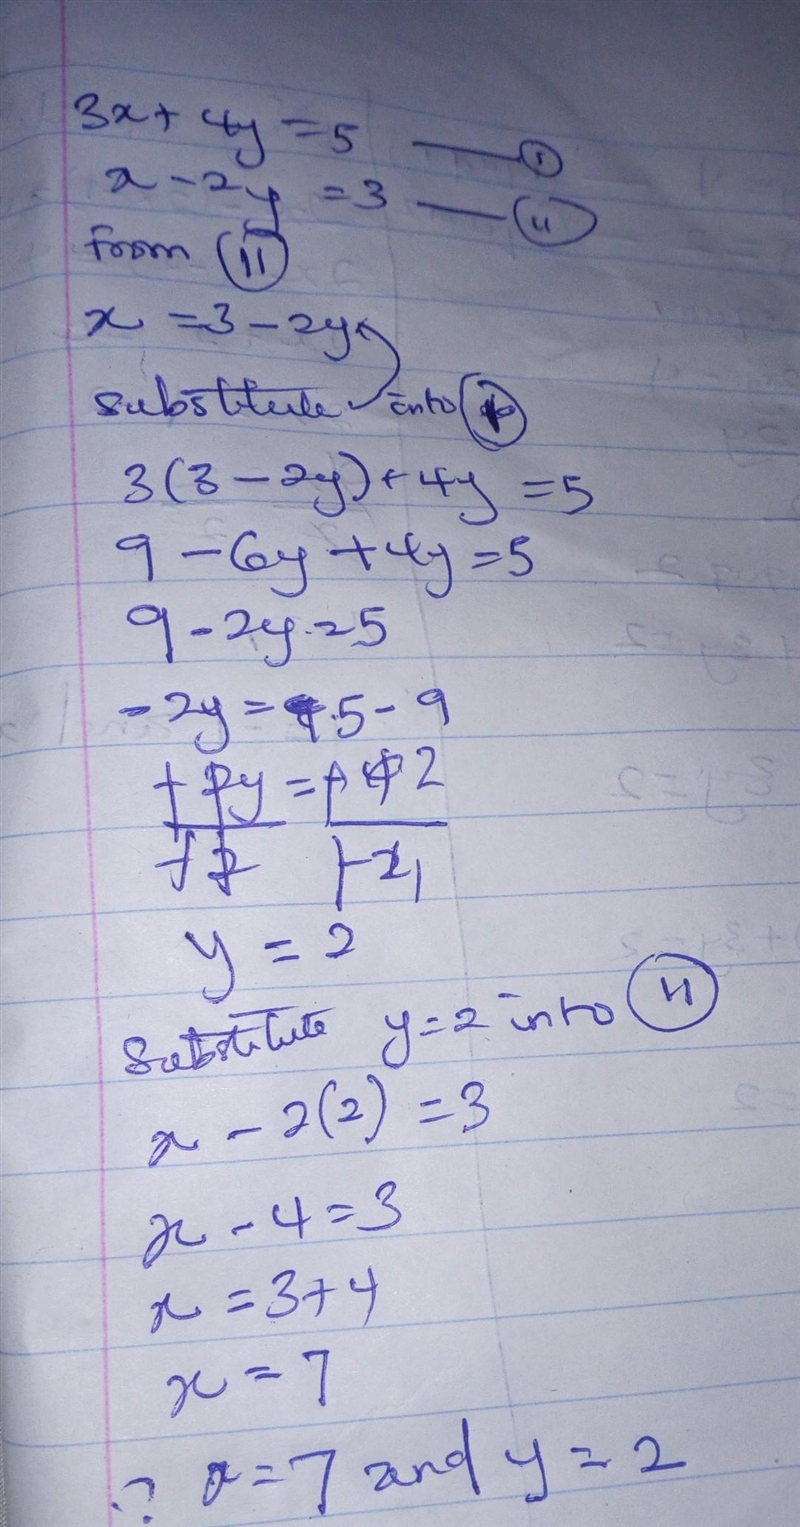 3x + 4y = 5 — (I)
x - 2y = 3 — (II)
from (II)
x = 3 - 2y
substitute into (I)
3(3 - 2y) + 4y = 5
9 - 6y + 4y = 5
9 - 2y = 5
-2y = 5 - 9
-2y = -4 2
-2 -2 1
y = 2
Substitute y = 2 into (II)
x - 2(2) = 3
x - 4 = 3
x = 3 + 4
x = 7
∴ x = 7 and y = 2